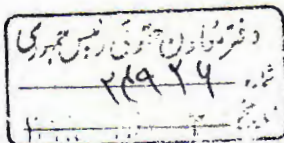 دفتر معاون حقوقی رئیس جمهوری
شماره ۲۴۹۲۶
تاریخ